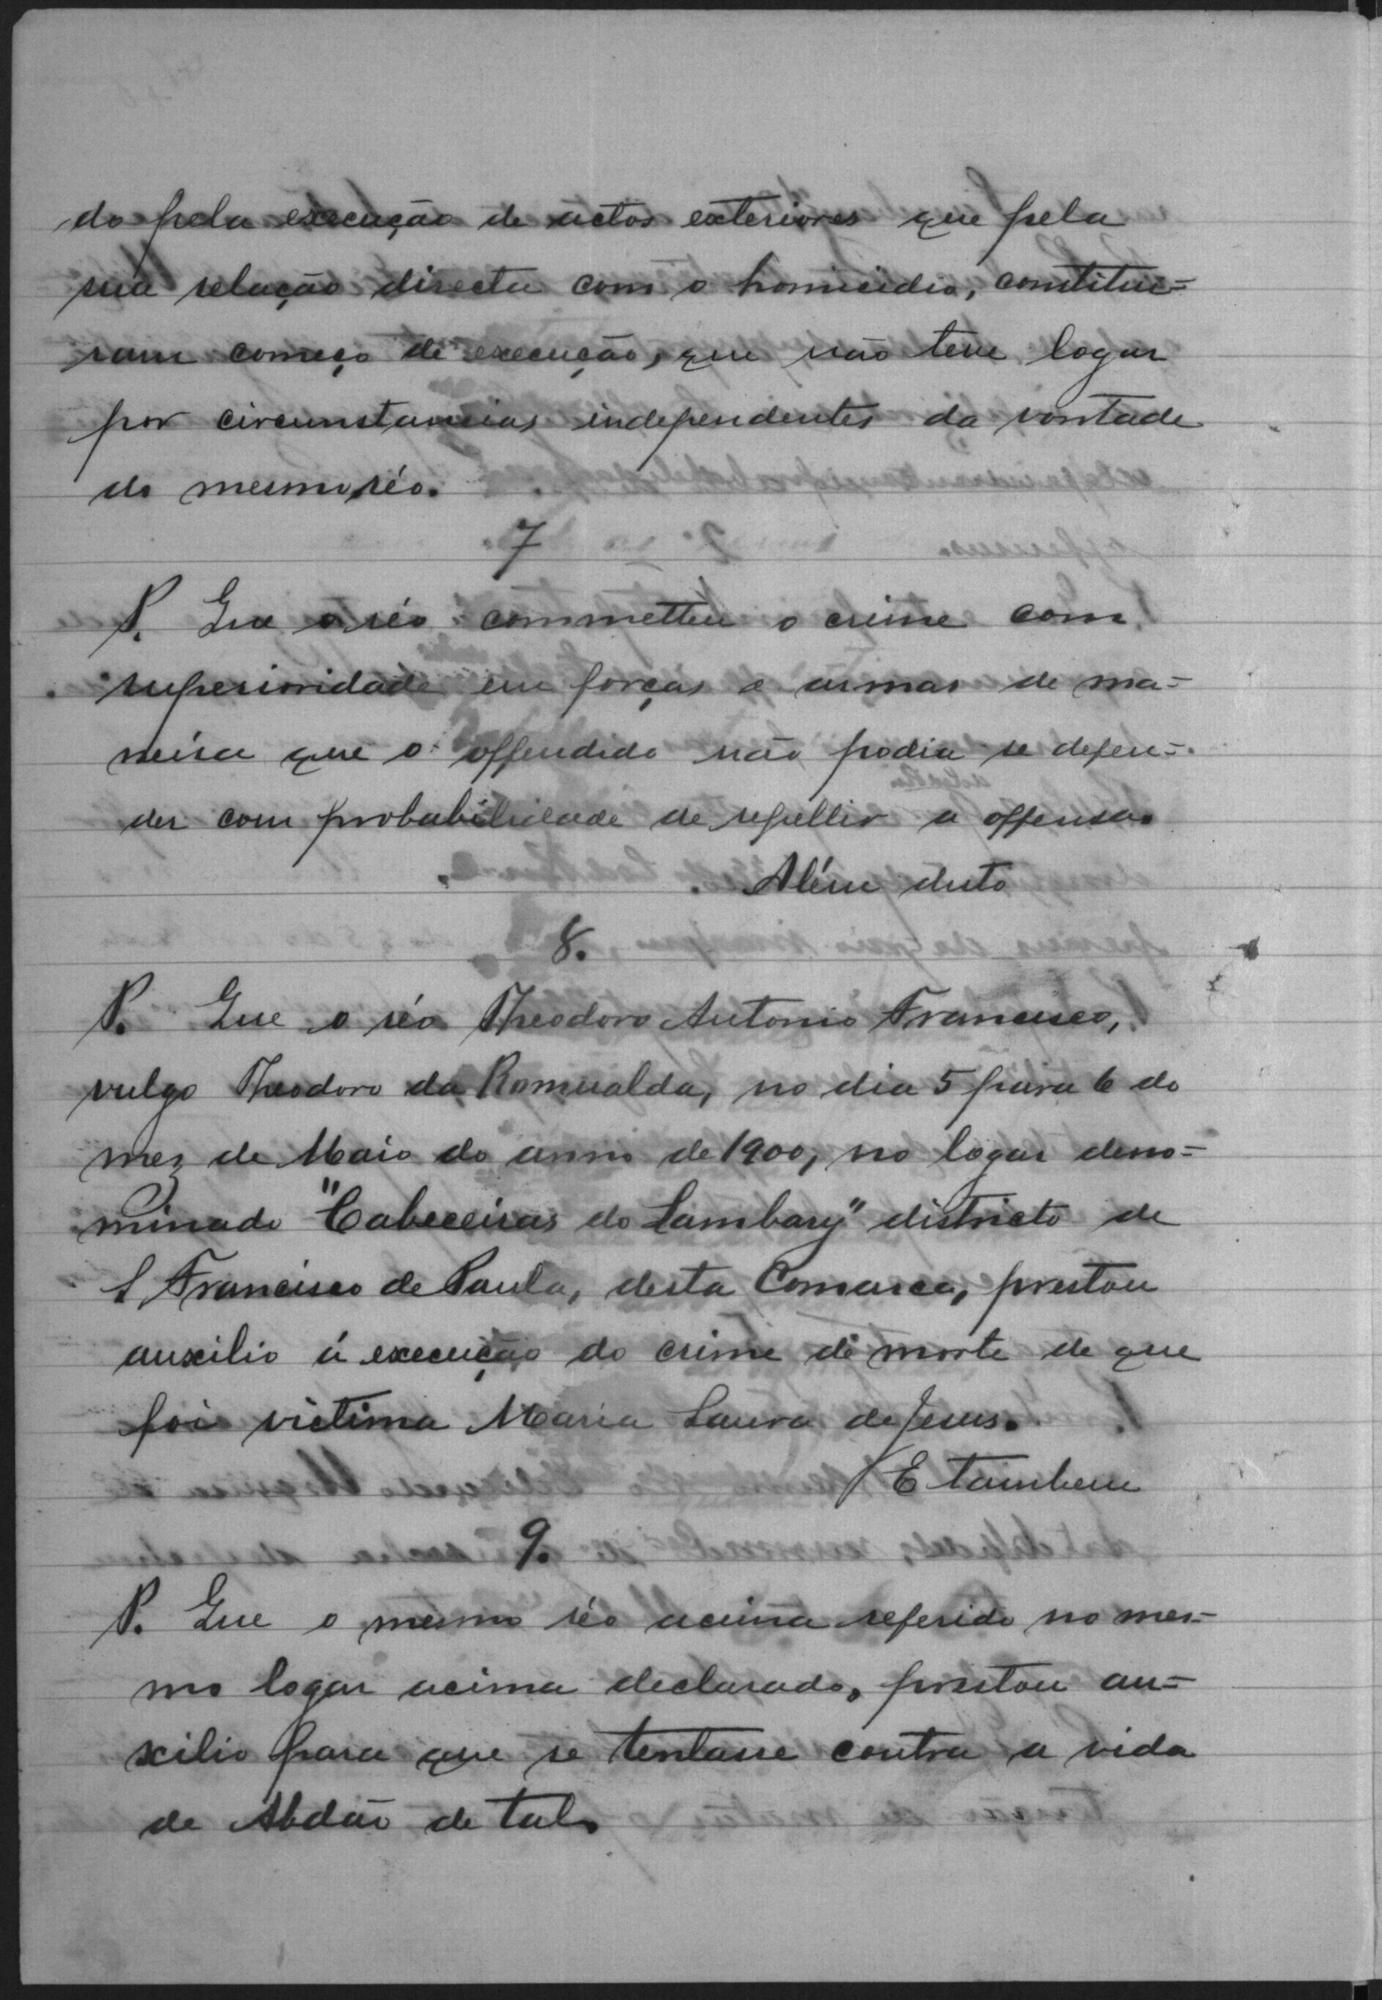 do pela execução de actos exteriores que pela
sua relação directa com o homicidio, constitui=
ram começo de execução, que não teve logar
por circunstancias independentes da vontade
do mesmo réo.
7
P. Que o réo commetteu o crime com
superioridade em forças e armas de ma=
neira que o offendido não podia se defen=
der com probabilidade de repellir a offensa.
Além disto
8.
P. Que o réo Theodoro Antonio Francisco,
vulgo Theodoro da Romualda, no dia 5 para 6 do
mez de Maio do anno de 1900, no logar deno=
minado "Cabeceiras do Lambary" districto de
S Francisco de Paula, desta Comarca, prestou
auxilio á execução do crime de morte de que
foi victima Maria Laura de Jesus.
E tambem
9.
P. Que o mesmo réo acima referido no mes=
mo logar acima declarado, prestou au=
xilio para que se tentasse contra a vida
de Abdão de tal.